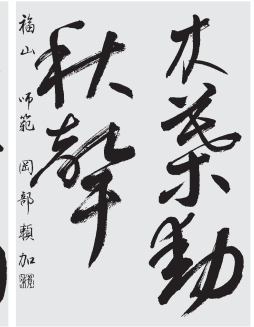 木葉動
秋聲
福山 師範 岡部頼加